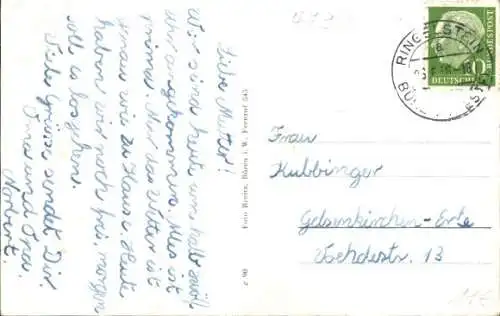 Liebe Mutter!
Wir sind heute um halb zwölf
hier angekommen. Alles ist
prima. Nur das Wetter ist
genau wie zu Hause. Heute
haben wir noch frei, morgen
soll es losgehen.
Viele Grüsse sendet Dir
und
Norbert.
Foto Reeitz, Büren i. W., Fernruf 545
c 90
RINGELSTEIN
DEUTSCHE BUNDESPOST
10
Frau
Kubbinger
Gelsenkirchen-Erle
13